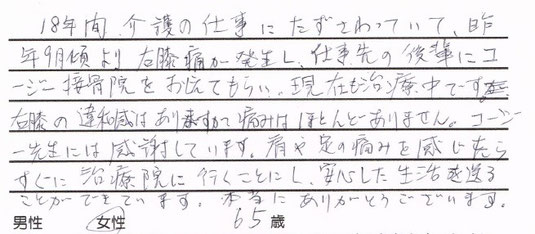 18年間、介護の仕事にたずさわっていて、昨
年9月頃より右膝痛が発生し、仕事先の後輩にコ
ージー接骨院をお伝てもらい、現在も治療中です。
右膝の違和感はありますが痛みはほとんどありません。コージ
ー先生には感謝しています。肩や足の痛みを感じたら
すぐに治療院に行くことにし、安心した生活を送る
ことができています。本当にありがとうございます。
男性 女性 65歳